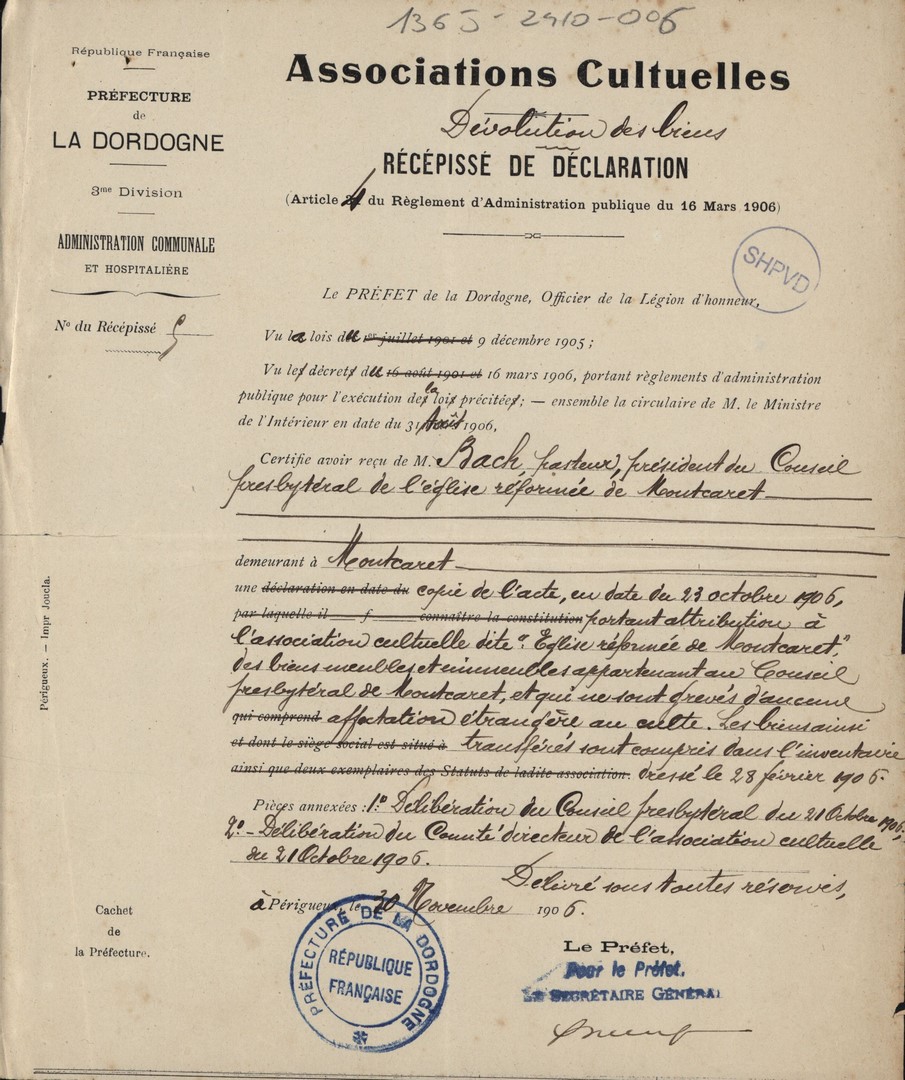 1365 - 2910-006
République Française
PRÉFECTURE
de
LA DORDOGNE
3me Division
ADMINISTRATION COMMUNALE
ET HOSPITALIÈRE
No du Récépissé 5
Associations Cultuelles
Dévolution des biens
RÉCÉPISSÉ DE DÉCLARATION
(Article 4 du Règlement d'Administration publique du 16 Mars 1906)
SHPVD
Le PRÉFET de la Dordogne, Officier de la Légion d'honneur,
Vu la lois du 1er juillet 1901 et 9 décembre 1905 ;
Vu les décrets du 16 août 1901 et 16 mars 1906, portant règlements d'administration
publique pour l'exécution des la lois précitées; — ensemble la circulaire de M. le Ministre
de l'Intérieur en date du 31 Août 1906,
Certifie avoir reçu de M. Bach, pasteur, président du Conseil
presbytéral de l'église réformée de Montcaret
demeurant à Montcaret
une déclaration en date du copie de l'acte, en date du 23 octobre 1906,
par laquelle il f connaître la constitution portant attribution à
l'association cultuelle dite "Eglise réformée de Montcaret",
des biens meubles et immeubles appartenant au Conseil
presbytéral de Montcaret, et qui ne sont grevés d'aucune
qui comprend affectation étrangère au culte. Les biens ainsi
et dont le siège social est situé à transférés sont compris dans l'inventaire
ainsi que deux exemplaires des Statuts de ladite association. dressé le 28 février 1906.
Pièces annexées : 1o Délibération du Conseil presbytéral du 21 Octobre 1906,
2o - Délibération du Comité directeur de l'association cultuelle
du 21 Octobre 1906.
Délivré sous toutes réserves,
à Périgueux, le 30 Novembre 1906.
Cachet
de
la Préfecture.
PRÉFECTURE DE LA DORDOGNE
RÉPUBLIQUE
FRANÇAISE
Le Préfet,
Pour le Préfet,
LE SECRÉTAIRE GÉNÉRAL
Périgueux. — Impr Joucla.